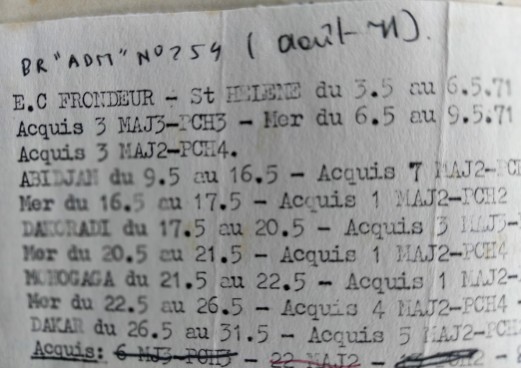 BR "ADM" N° 254 ( août 71).
E.C FRONDEUR - St HELENE du 3.5 au 6.5.71
Acquis 3 MAJ3-PCH3 - Mer du 6.5 au 9.5.71
Acquis 3 MAJ2-PCH4.
ABIDJAN du 9.5 au 16.5 - Acquis 7 MAJ2-PC
Mer du 16.5 au 17.5 - Acquis 1 MAJ2-PCH2
DAKORADI du 17.5 au 20.5 - Acquis 3 MAJ3-
Mer du 20.5 au 21.5 - Acquis 1 MAJ2-PCH4
MONOGAGA du 21.5 au 22.5 - Acquis 1 MAJ2-
Mer du 22.5 au 26.5 - Acquis 4 MAJ2-PCH4
DAKAR du 26.5 au 31.5 - Acquis 5 MAJ2-PCH
Acquis: 6 MJ3-PCH3 - 22 MAJ2 -